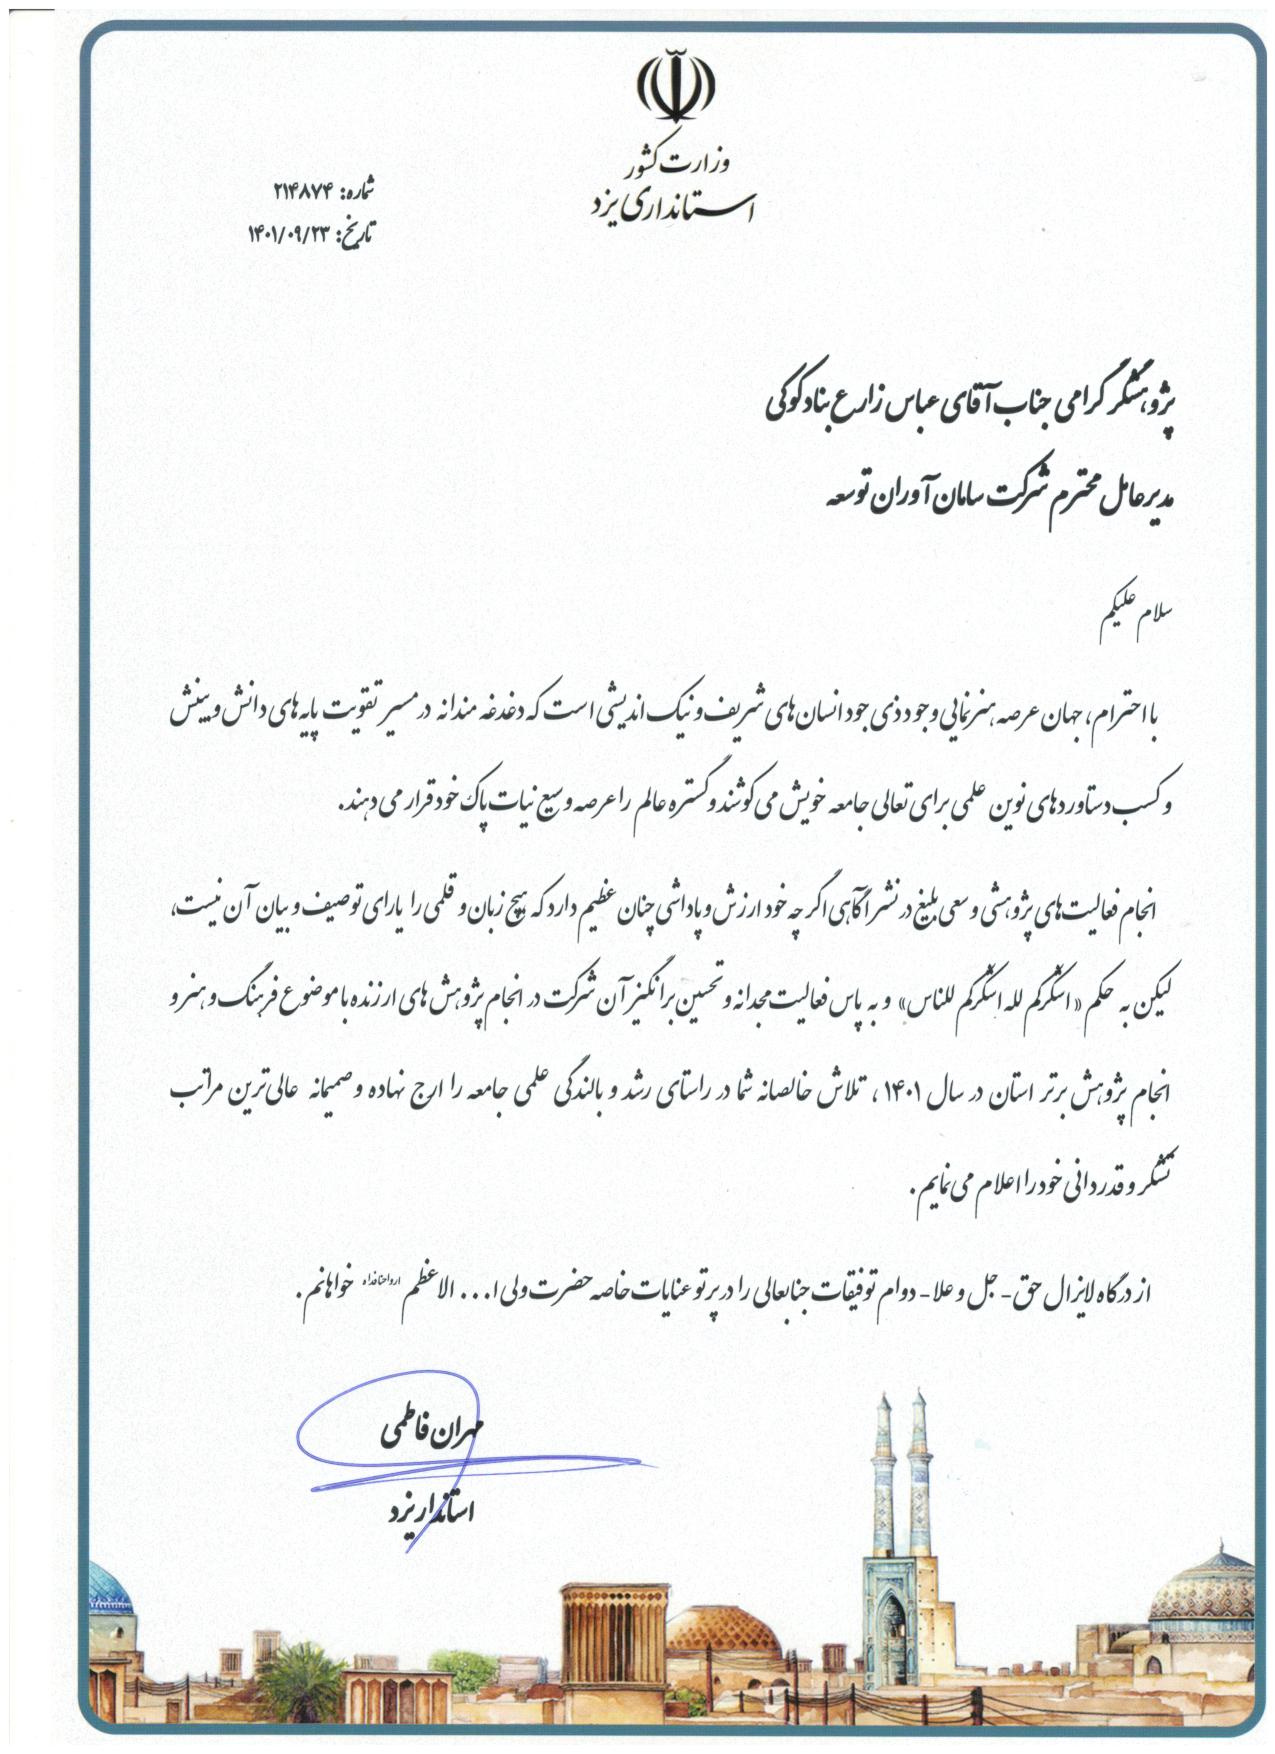 وزارت کشور
استانداری یزد
شماره: ۲۱۴۸۷۴
تاریخ: ۱۴۰۱/۰۹/۲۳
پژوهشگر گرامی جناب آقای عباس زارع بنادکوکی
مدیرعامل محترم شرکت سامان آوران توسعه
سلام علیکم
با احترام، جهان عرصه هنرنمایی وجود ذی جود انسان های شریف و نیک اندیشی است که دغدغه مندانه در مسیر تقویت پایه های دانش و بینش
و کسب دستاوردهای نوین علمی برای تعالی جامعه خویش می کوشند و گستره عالم را عرصه وسیع نیات پاک خود قرار می دهند.
انجام فعالیت های پژوهشی و سعی بلیغ در نشر آگاهی اگر چه خود ارزش و پاداشی چنان عظیم دارد که هیچ زبان و قلمی را یارای توصیف و بیان آن نیست،
لیکن به حکم «اشکرکم لله اشکرکم للناس» و به پاس فعالیت مجدانه و تحسین برانگیز آن شرکت در انجام پژوهش های ارزنده با موضوع فرهنگ و هنر و
انجام پژوهش برتر استان در سال ۱۴۰۱، تلاش خالصانه شما در راستای رشد و بالندگی علمی جامعه را ارج نهاده و صمیمانه عالی ترین مراتب
تشکر و قدردانی خود را اعلام می نمایم.
از درگاه لایزال حق - جل و علا - دوام توفیقات جنابعالی را در پرتو عنایات خاصه حضرت ولی ا... الاعظم ارواحنا فداه خواهانم.
مهران فاطمی
استاندار یزد